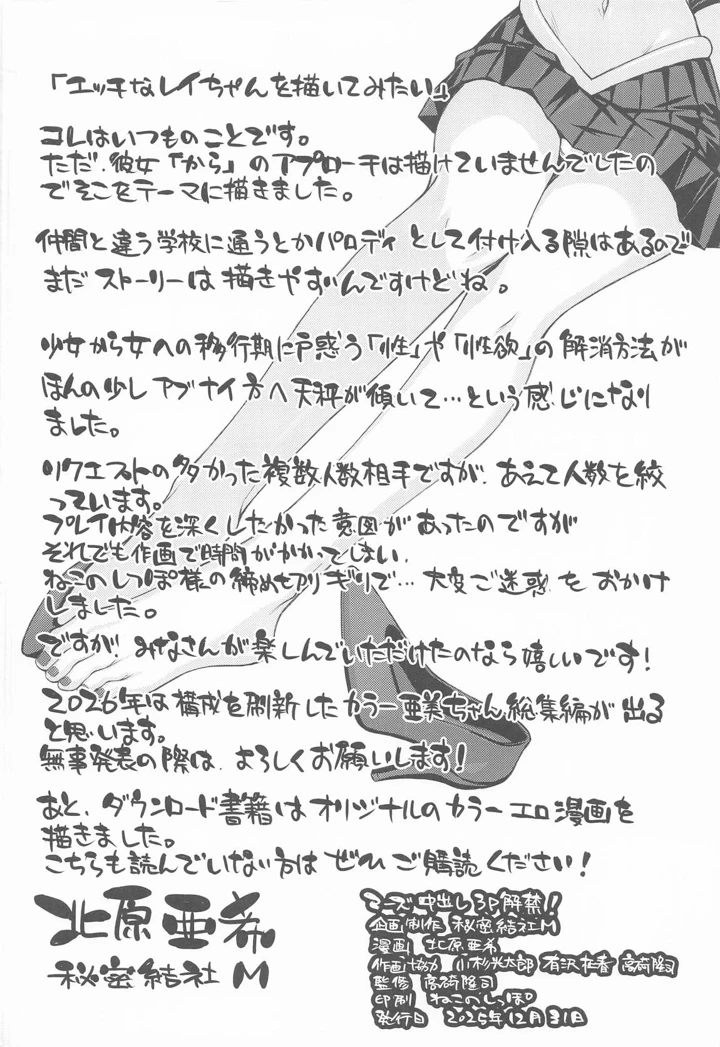 「エッチなレイちゃんを描いてみたい」
コレはいつものことです。
ただ、彼女「から」のアプローチは描けていませんでしたの
でそこをテーマに描きました。
仲間と違う学校に通うとかパロディとして付け入る隙はあるので
まだストーリーは描きやすいんですけどね。
少女から女への移行期に戸惑う「性」や「性欲」の解消方法が
ほんの少しアブナイ方へ天秤が傾いて…という感じになり
ました。
リクエストの多かった複数人数相手ですが、あえて人数を絞
っています。
プレイ内容を深くしたかった意図があったのですが
それでも作画で時間がかかってしまい、
ねこのしっぽ様の締めもギリギリで…大変ご迷惑をおかけ
しました。
ですが！みなさんが楽しんでいただけたのなら嬉しいです！
2026年は構成を刷新したカラー亜美ちゃん総集編が出る
と思います。
無事発表の際は、よろしくお願いします！
あと、ダウンロード書籍はオリジナルのカラーエロ漫画を
描きました。
こちらも読んでいない方はぜひご購読ください！
北原亜希
秘密結社M
ミーズ中出し3P解禁!!
企画制作 秘密結社M
漫画 北原亜希
作画協力 小杉光太郎 有沢杜香 高崎隆司
監修 高崎隆司
印刷 ねこのしっぽ
発行日 2025年12月31日